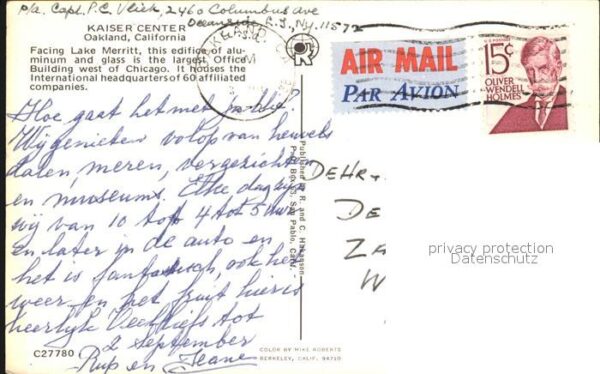 p/a. Capt. P.C. Vliek, 2460 Columbus Ave
Oceanside, N.Y. 11572
KAISER CENTER
Oakland, California
Facing Lake Merritt, this edifice of alu-
minum and glass is the largest Office
Building west of Chicago. It houses the
International headquarters of 60 affiliated
companies.
Hoe gaat het met jullie?
Wij genieten volop van heuvels
dalen, meren, vergezichten
en museums. Elke dag zijn
wij van 10 tot 4 tot 5 uur
en later in de auto en
het is fantastisch, ook het
weer en het fruit hier is
heerlijk Veel liefs tot
2 september
Rup en Jeane
C27780
COLOR BY MIKE ROBERTS
BERKELEY, CALIF. 94710
Published by R. and C.
Post Box 3, San Pablo, Calif.
AIR MAIL
PAR AVION
U.S. POSTAGE
15¢
OLIVER
WENDELL
HOLMES
DEHR.
DE
ZA
W
privacy protection
Datenschutz